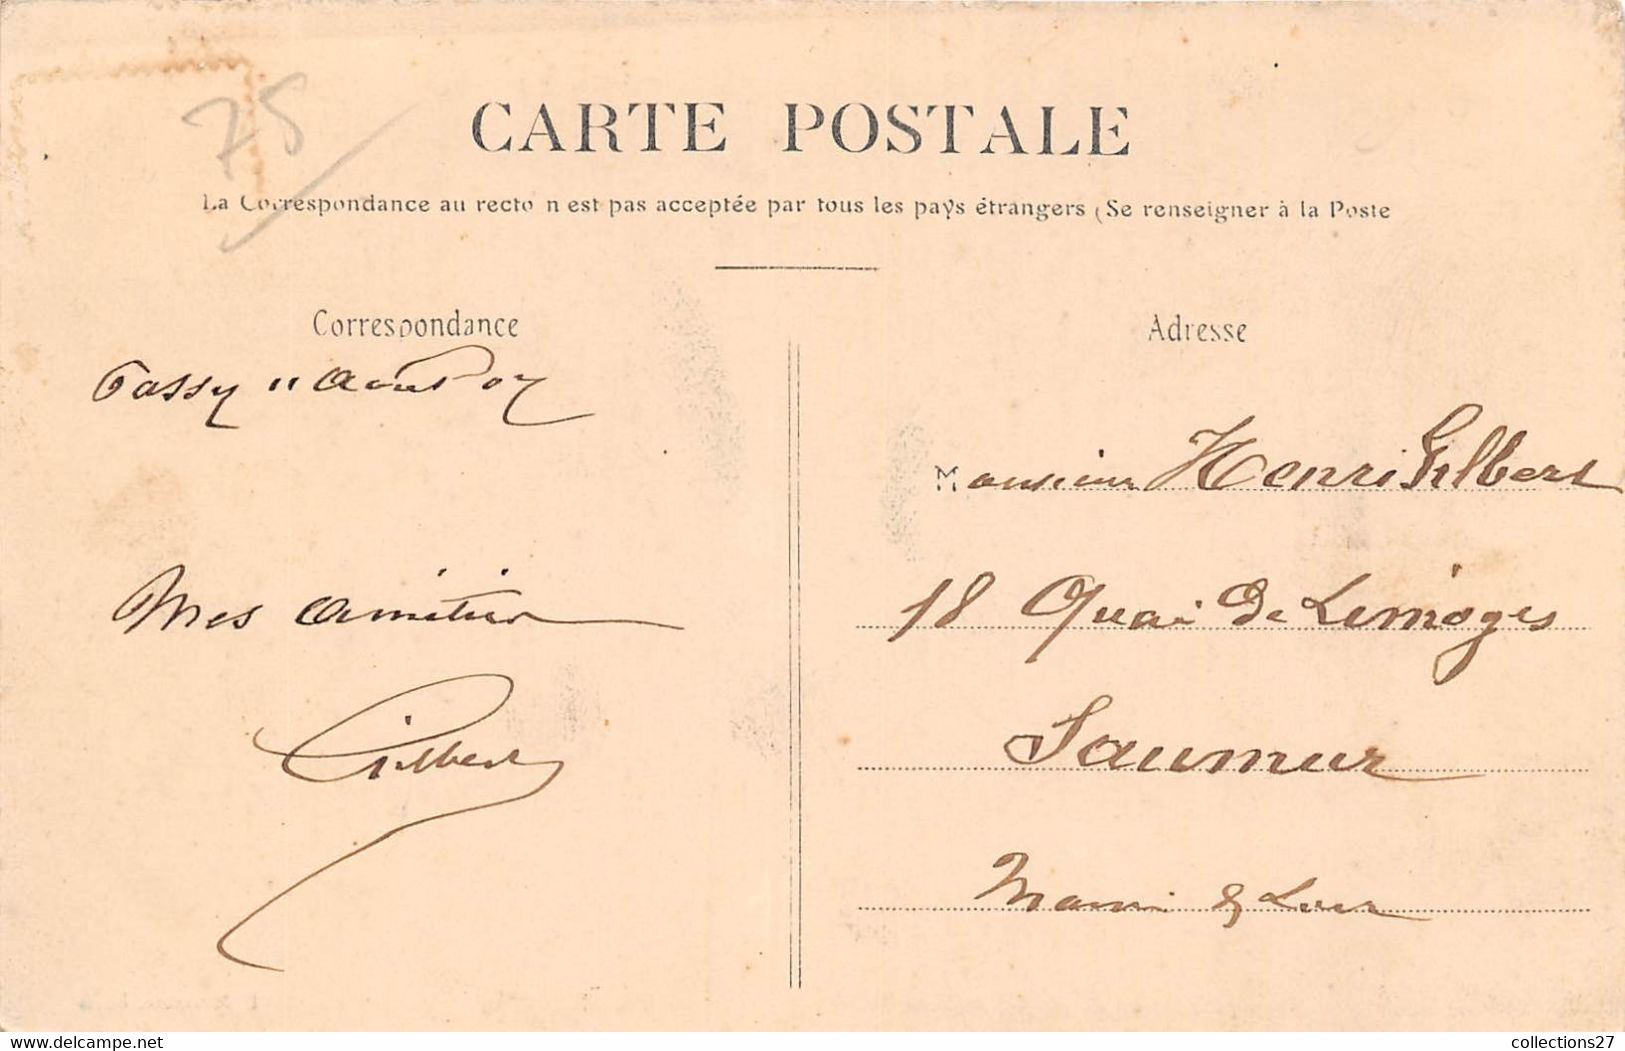 75
CARTE POSTALE
La Correspondance au recto n'est pas acceptée par tous les pays étrangers (Se renseigner à la Poste
Correspondance
Passy 11 Aout 07
Mes amitiés
Gilbert
Adresse
Monsieur Henri Gilbert
18 Quai de Limoges
Saumur
Maine & Loire
www.delcampe.net
collections27